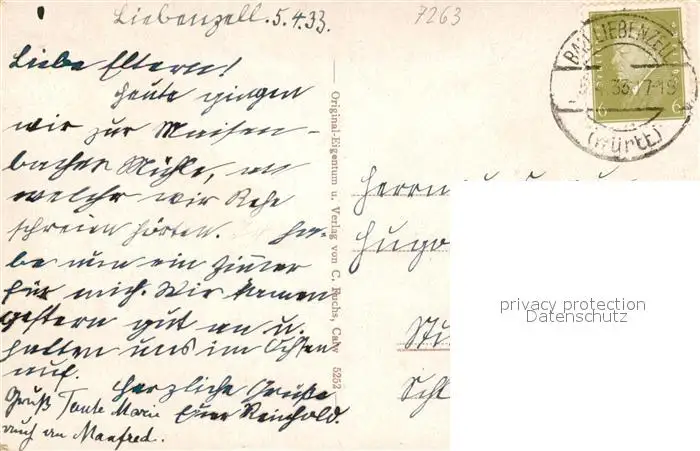 Liebenzell. 5.4.33.
7263
Liebe Eltern!
Heute gingen
wir zur Maisen-
bacher Mühle, an
welcher wir Rehe
schreien hörten. Ha-
be nun ein Zimmer
für mich. Wir kamen
gestern gut an u.
halten uns im Ochsen
auf.
Herzliche Grüße
Euer Reinhold.
Gruß Tante Marie
auch an Manfred.
Original-Eigentum u. Verlag von C. Fuchs, Calw 5252
BAD LIEBENZELL
33. 7-19
(Württ.)
6 6
Herrn
Hugo
Stu
Schl
privacy protection
Datenschutz